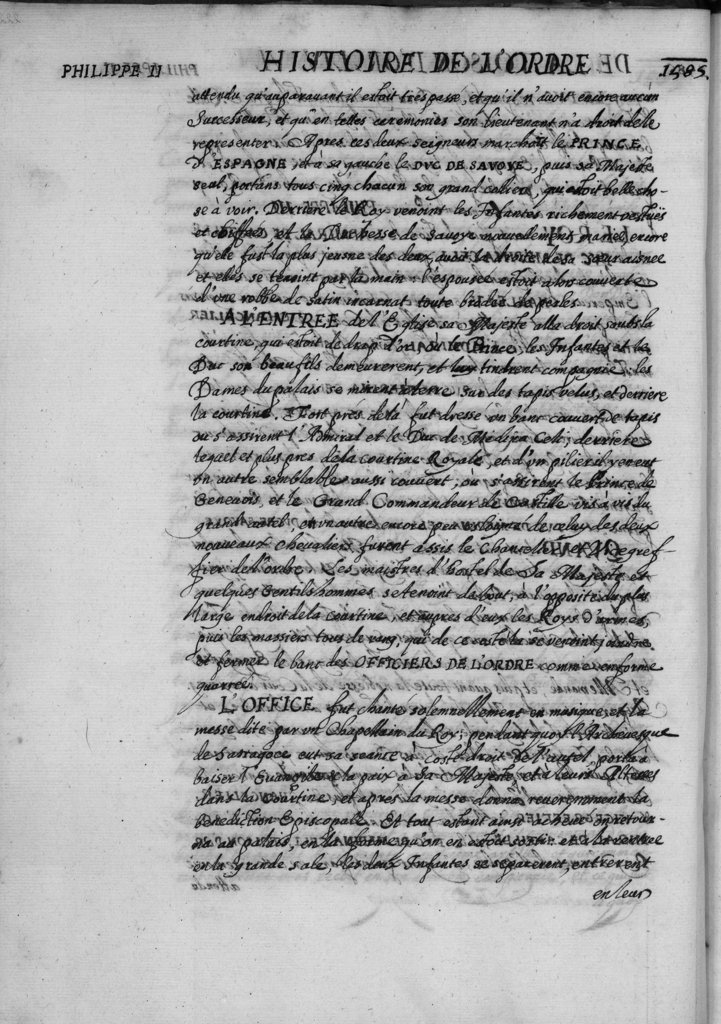 PHILIPPE II HISTOIRE DE L'ORDRE 1585.
attendu qu'auparavant il estoit trespassé, et qu'il n'avoit encore aucun
Successeur, et qu'en telles ceremonies son lieutenant n'a droit de le
representer. Apres ces deux seigneurs marchoit le PRINCE
D'ESPAGNE, et a sa gauche le DVC DE SAVOYE, puis sa Majesté
seul, portans tous cinq chacun son grand collier, qui estoit belle cho-
se à voir. Derriere le Roy venoint les Infantes richement vestuës
et coiffées, et la Duchesse de Savoye nouvellement mariée, encore
qu'elle fust la plus jeusne des deux, avoit la droite de sa sœur aisnée
et elles se tenoint par la main: l'espousée estoit alors couverte
d'une robbe de satin incarnat toute brodée de perles.
A L'ENTREE de l'Eglise sa Majesté alla droit soubs la
courtine, qui estoit de drap d'or, où le Prince, les Infantes et le
Duc son beau fils demeurerent, et luy tindrent compagnie: les
Dames du palais se mirent a terre sur des tapis velus, et derriere
la courtine. Fort pres de là fut dressé un banc couvert de tapis
ou s'assirent l'Admiral et le Duc de Medina Celi; derriere
lequel et plus pres de la courtine Royale, et d'un pilier il y en eut
un autre semblable aussi couvert, où s'assirent le Prince de
et le Grand Commandeur de Castille vis à vis du
grand autel, et un autre encore peu esloigné de celuy des deux
nouveaux Chevaliers furent assis le Chancellier et le gref-
fier de l'ordre. Les maistres d'hostel de Sa Majesté et
quelques Gentilshommes se tenoint debout, a l'opposite du plus
large endroit de la courtine, et aupres d'eux les Roys d'armes,
puis les massiers tous de rang, qui de ce costé la se venoint joindre
et fermer le banc des OFFICIERS DE L'ORDRE comme en forme
quarrée.
L'OFFICE fut chanté solemnellement en musique, et la
messe dite par un Chapellain du Roy; pendant quoy l'Archevesque
de Sarragoce eut sa seance a costé droit de l'autel, porta à
baiser l'Evangile et la paix à Sa Majesté et a leurs Altezes
dans la courtine, et apres la messe donna reveremment la
benediction Episcopale. Et tout estant ainsi achevé on retour-
na au palais, en la forme qu'on en estoit sortir et a la rentrée
en la grande sale, les deux Infantes se separerent, entrerent
en leur